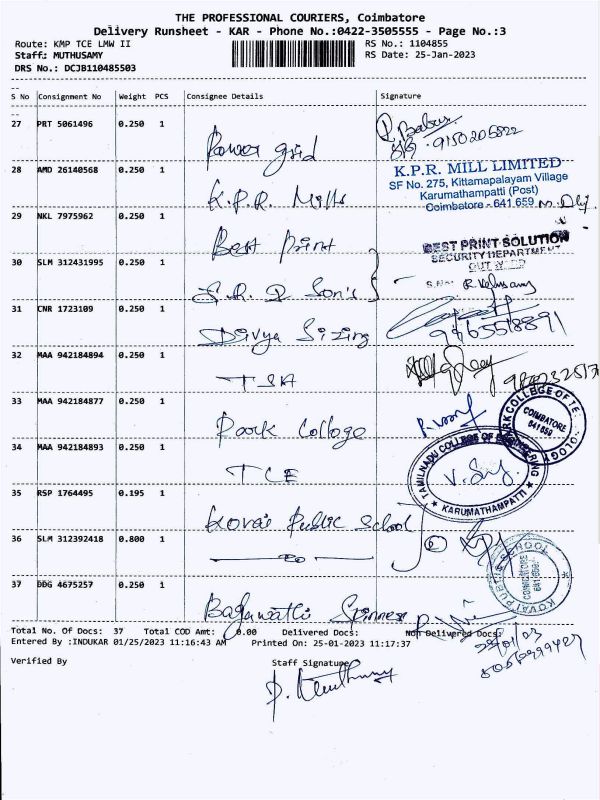 THE PROFESSIONAL COURIERS, Coimbatore
Delivery Runsheet - KAR - Phone No.:0422-3505555 - Page No.:3
Route: KMP TCE LMW II RS No.: 1104855
Staff: MUTHUSAMY RS Date: 25-Jan-2023
DRS No.: DCJB110485503
S No Consignment No Weight PCS Consignee Details Signature
27 PRT 5061496 0.250 1 Power grid
28 AMD 26140568 0.250 1 K.P.R. Mills
K.P.R. MILL LIMITED
SF No. 275, Kittamapalayam Village
Karumathampatti (Post)
Coimbatore - 641 659
29 NKL 7975962 0.250 1 Best Print
BEST PRINT SOLUTION
SECURITY DEPARTMENT
30 SLM 312431995 0.250 1 Son's
31 CNR 1723109 0.250 1 Divya Sizing
32 MAA 942184894 0.250 1
33 MAA 942184877 0.250 1 Park College
COIMBATORE
641 659
34 MAA 942184893 0.250 1 TCE
TAMILNADU COLLEGE OF ENGINEERING
KARUMATHAMPATTI
35 RSP 1764495 0.195 1 Kovai Public School
36 SLM 312392418 0.800 1
KOVAI PUBLIC SCHOOL
COIMBATORE
37 DDG 4675257 0.250 1
Total No. Of Docs: 37 Total COD Amt: 0.00 Delivered Docs: Non Delivered Docs:
Entered By :INDUKAR 01/25/2023 11:16:43 AM Printed On: 25-01-2023 11:17:37
Verified By Staff Signature